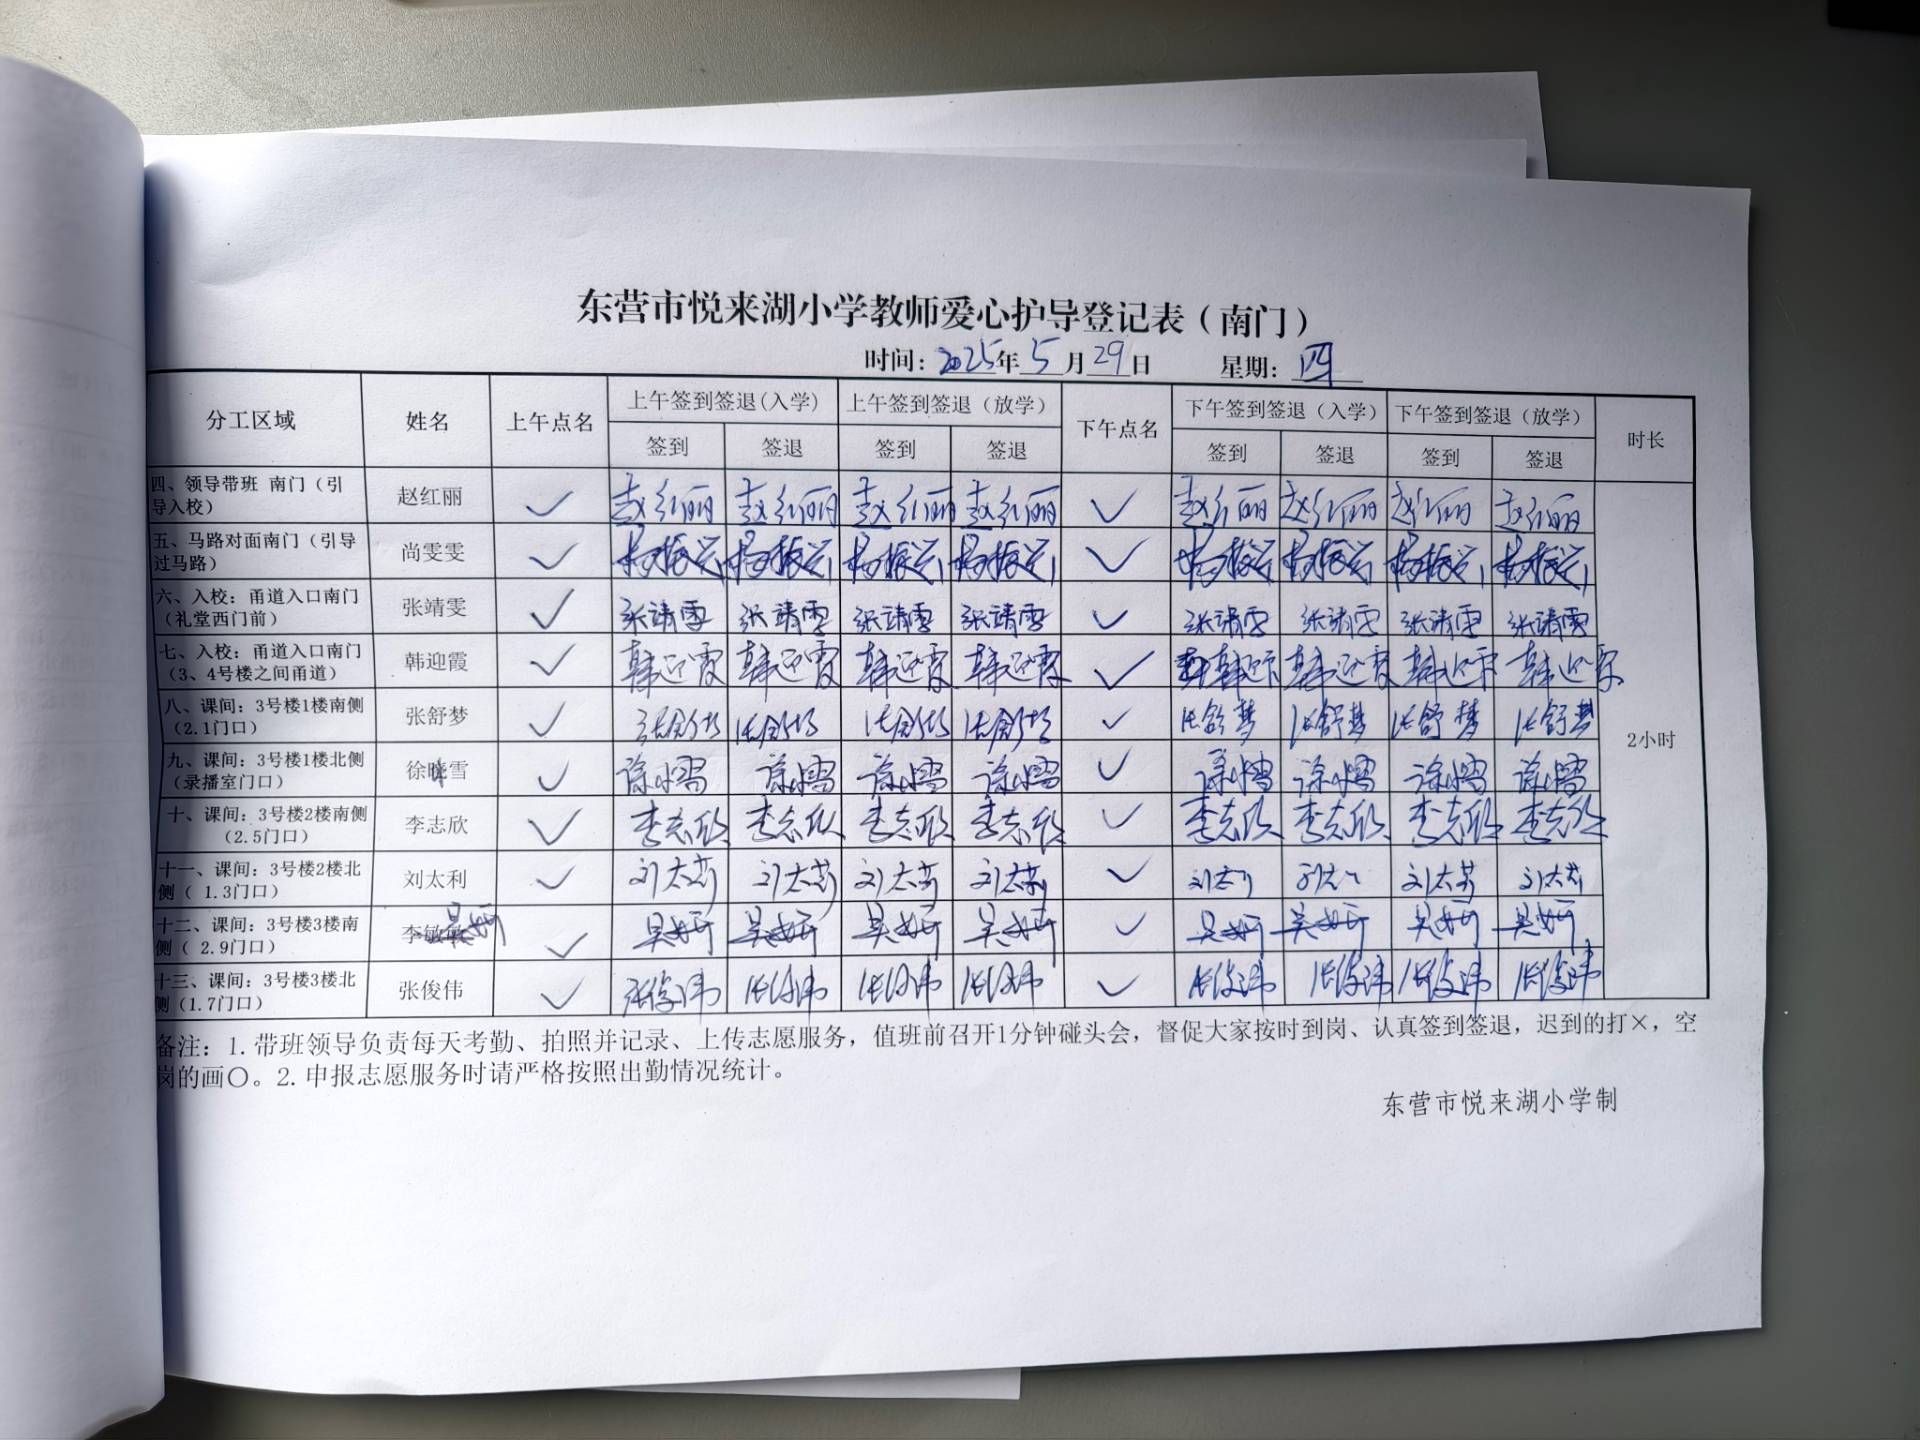 东营市悦来湖小学教师爱心护导登记表（南门）
时间：2025年5月29日 星期：四
分工区域 姓名 上午点名 上午签到签退(入学) 上午签到签退（放学） 下午点名 下午签到签退（入学） 下午签到签退（放学） 时长
签到 签退 签到 签退 签到 签退 签到 签退
四、领导带班 南门（引
导入校） 赵红丽 ✓ 赵红丽 赵红丽 赵红丽 赵红丽 ✓ 赵红丽 赵红丽 赵红丽 赵红丽
五、马路对面南门（引导
过马路） 尚雯雯 ✓ 杨振兴 杨振兴 杨振兴 杨振兴 ✓ 杨振兴 杨振兴 杨振兴 杨振兴
六、入校：甬道入口南门
（礼堂西门前） 张靖雯 ✓ 张靖雯 张靖雯 张靖雯 张靖雯 ✓ 张靖雯 张靖雯 张靖雯 张靖雯
七、入校：甬道入口南门
（3、4号楼之间甬道） 韩迎霞 ✓ 韩迎霞 韩迎霞 韩迎霞 韩迎霞 ✓ 韩迎霞 韩迎霞 韩迎霞 韩迎霞
八、课间：3号楼1楼南侧
（2.1门口） 张舒梦 ✓ 张舒梦 张舒梦 张舒梦 张舒梦 ✓ 张舒梦 张舒梦 张舒梦 张舒梦
2小时
九、课间：3号楼1楼北侧
（录播室门口） 徐 雪 ✓ ✓
十、课间：3号楼2楼南侧
（2.5门口） 李志欣 ✓ 李志欣 李志欣 李志欣 李志欣 ✓ 李志欣 李志欣 李志欣 李志欣
十一、课间：3号楼2楼北
侧（ 1.3门口） 刘太利 ✓ 刘太莉 刘太莉 刘太莉 刘太莉 ✓ 刘太 刘太 刘太莉 刘太莉
十二、课间：3号楼3楼南
侧（ 2.9门口） 李敏 吴妍 ✓ 吴妍 吴妍 吴妍 吴妍 ✓ 吴妍 吴妍 吴妍 吴妍
十三、课间：3号楼3楼北
侧(1.7门口） 张俊伟 ✓ 张俊伟 张俊伟 张俊伟 张俊伟 ✓ 张俊伟 张俊伟 张俊伟 张俊伟
备注：1.带班领导负责每天考勤、拍照并记录、上传志愿服务，值班前召开1分钟碰头会，督促大家按时到岗、认真签到签退，迟到的打×，空
岗的画〇。2.申报志愿服务时请严格按照出勤情况统计。
东营市悦来湖小学制